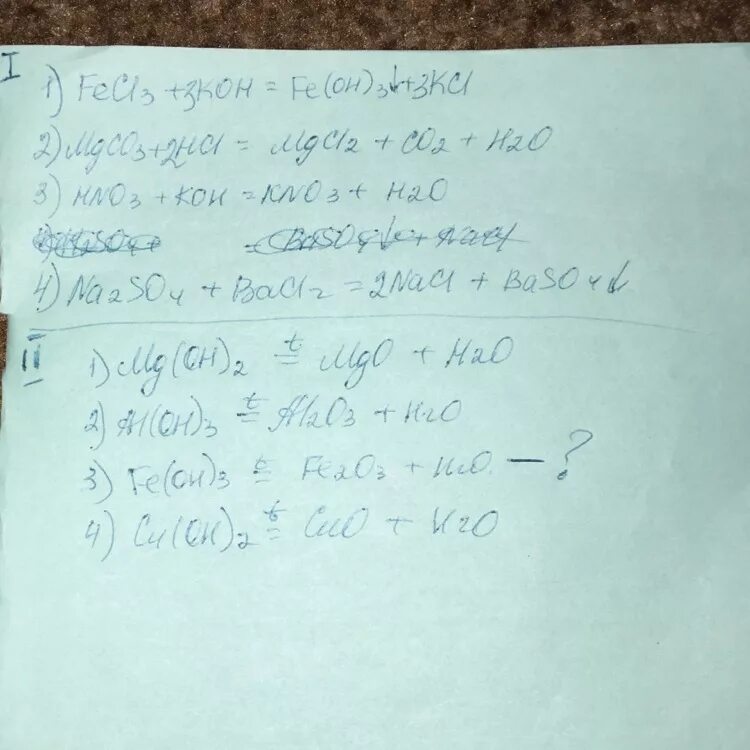 I
1) FeCl3 + 3KOH = Fe(OH)3↓ + 3KCl
2) MgCO3 + 2HCl = MgCl2 + CO2 + H2O
3) HNO3 + KOH = KNO3 + H2O
BaSO4↓ + NaCl
4) Na2SO4 + BaCl2 = 2NaCl + BaSO4↓
II
1) Mg(OH)2 t= MgO + H2O
2) Al(OH)3 t= Al2O3 + H2O
3) Fe(OH)3 t= Fe2O3 + H2O. — ?
4) Cu(OH)2 t= CuO + H2O